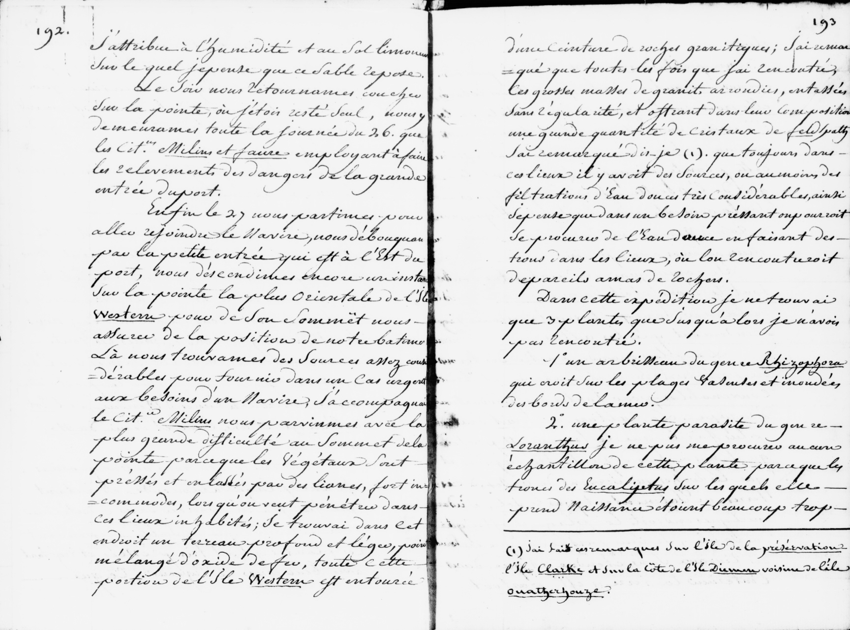 192.
J'attribue à l'humidité et au Sol limoneux
Sur le quel je pense que ce Sable repose.
Le Soir nous retournames coucher
Sur la pointe, où j'étois resté Seul, nous y
demeurames toute la journée du 26. que
les Cit.ens Milius et faure employant à faire
les relevements des dangers de la grande
entrée du port.
Enfin le 27 nous partimes pour
aller rejoindre le Navire, nous débouquames
par la petite entrée qui est à l'Est du
port, nous déscendimes encore un instant
Sur la pointe la plus Orientale de l'Ile
Western pour de Son Sommèt nous
assurer de la position de notre batiment
Là nous trouvames des Sources assez consi
=dérables pour fournir dans un Cas urgent
aux besoins d'un Navire; J'accompagnai
le Cit.en Milius nous parvinmes avec la
plus grande difficulté au Sommet de la
pointe parceque les Végétaux Sont
préssés et enlassés par des lianes, fort in
=commodes, lorsqu'on veut pénétrer dans
Ces lieux inhabités; Je trouvai dans Cet
endroit un terreau profond et léger, point
mélangé d'oxide de fer, toute cette
portion de l'Ile Western est entourée
193
d'une Ceinture de roches granitiques; J'ai remar
=qué que toutes les fois que j'ai rencontré,
Ces grosses masses de granit arrondies, entassées
Sans régularité, et offrant dans leur Composition
une grande quantité de Cristaux de feldspath
J'ai remarqué dis-je (1). que toujours dans
ces lieux il y avoit des Sources, ou au moins des
filtrations d'Eau douces très Considérables, ainsi
Je pense que dans un besoin préssant on pourroit
Se procurer de l'Eau douce en faisant des
trous dans les lieux, où l'on rencontreroit
de pareils amas de rochers.
Dans cette expédition je ne trouvai
que 3 plantes que jusqu'à lors je n'avois
pas rencontré.
1.° un arbrisseau du genre Rhizophora
qui croit Sur les plages Vaseuses et inondées
des bords de la mer.
2.° une plante parasite du genre
Loranthus je ne pus me procurer aucun
échantillon de cette plante parceque les
troncs des Eucaliptus Sur les quels elle
prend Naissance étoient beaucoup trop
(1) J'ai fait ces remarques Sur l'Ile de la préservation
l'Ile Clarke et Sur la Côte de l'Ile Diemen voisine de l'ile